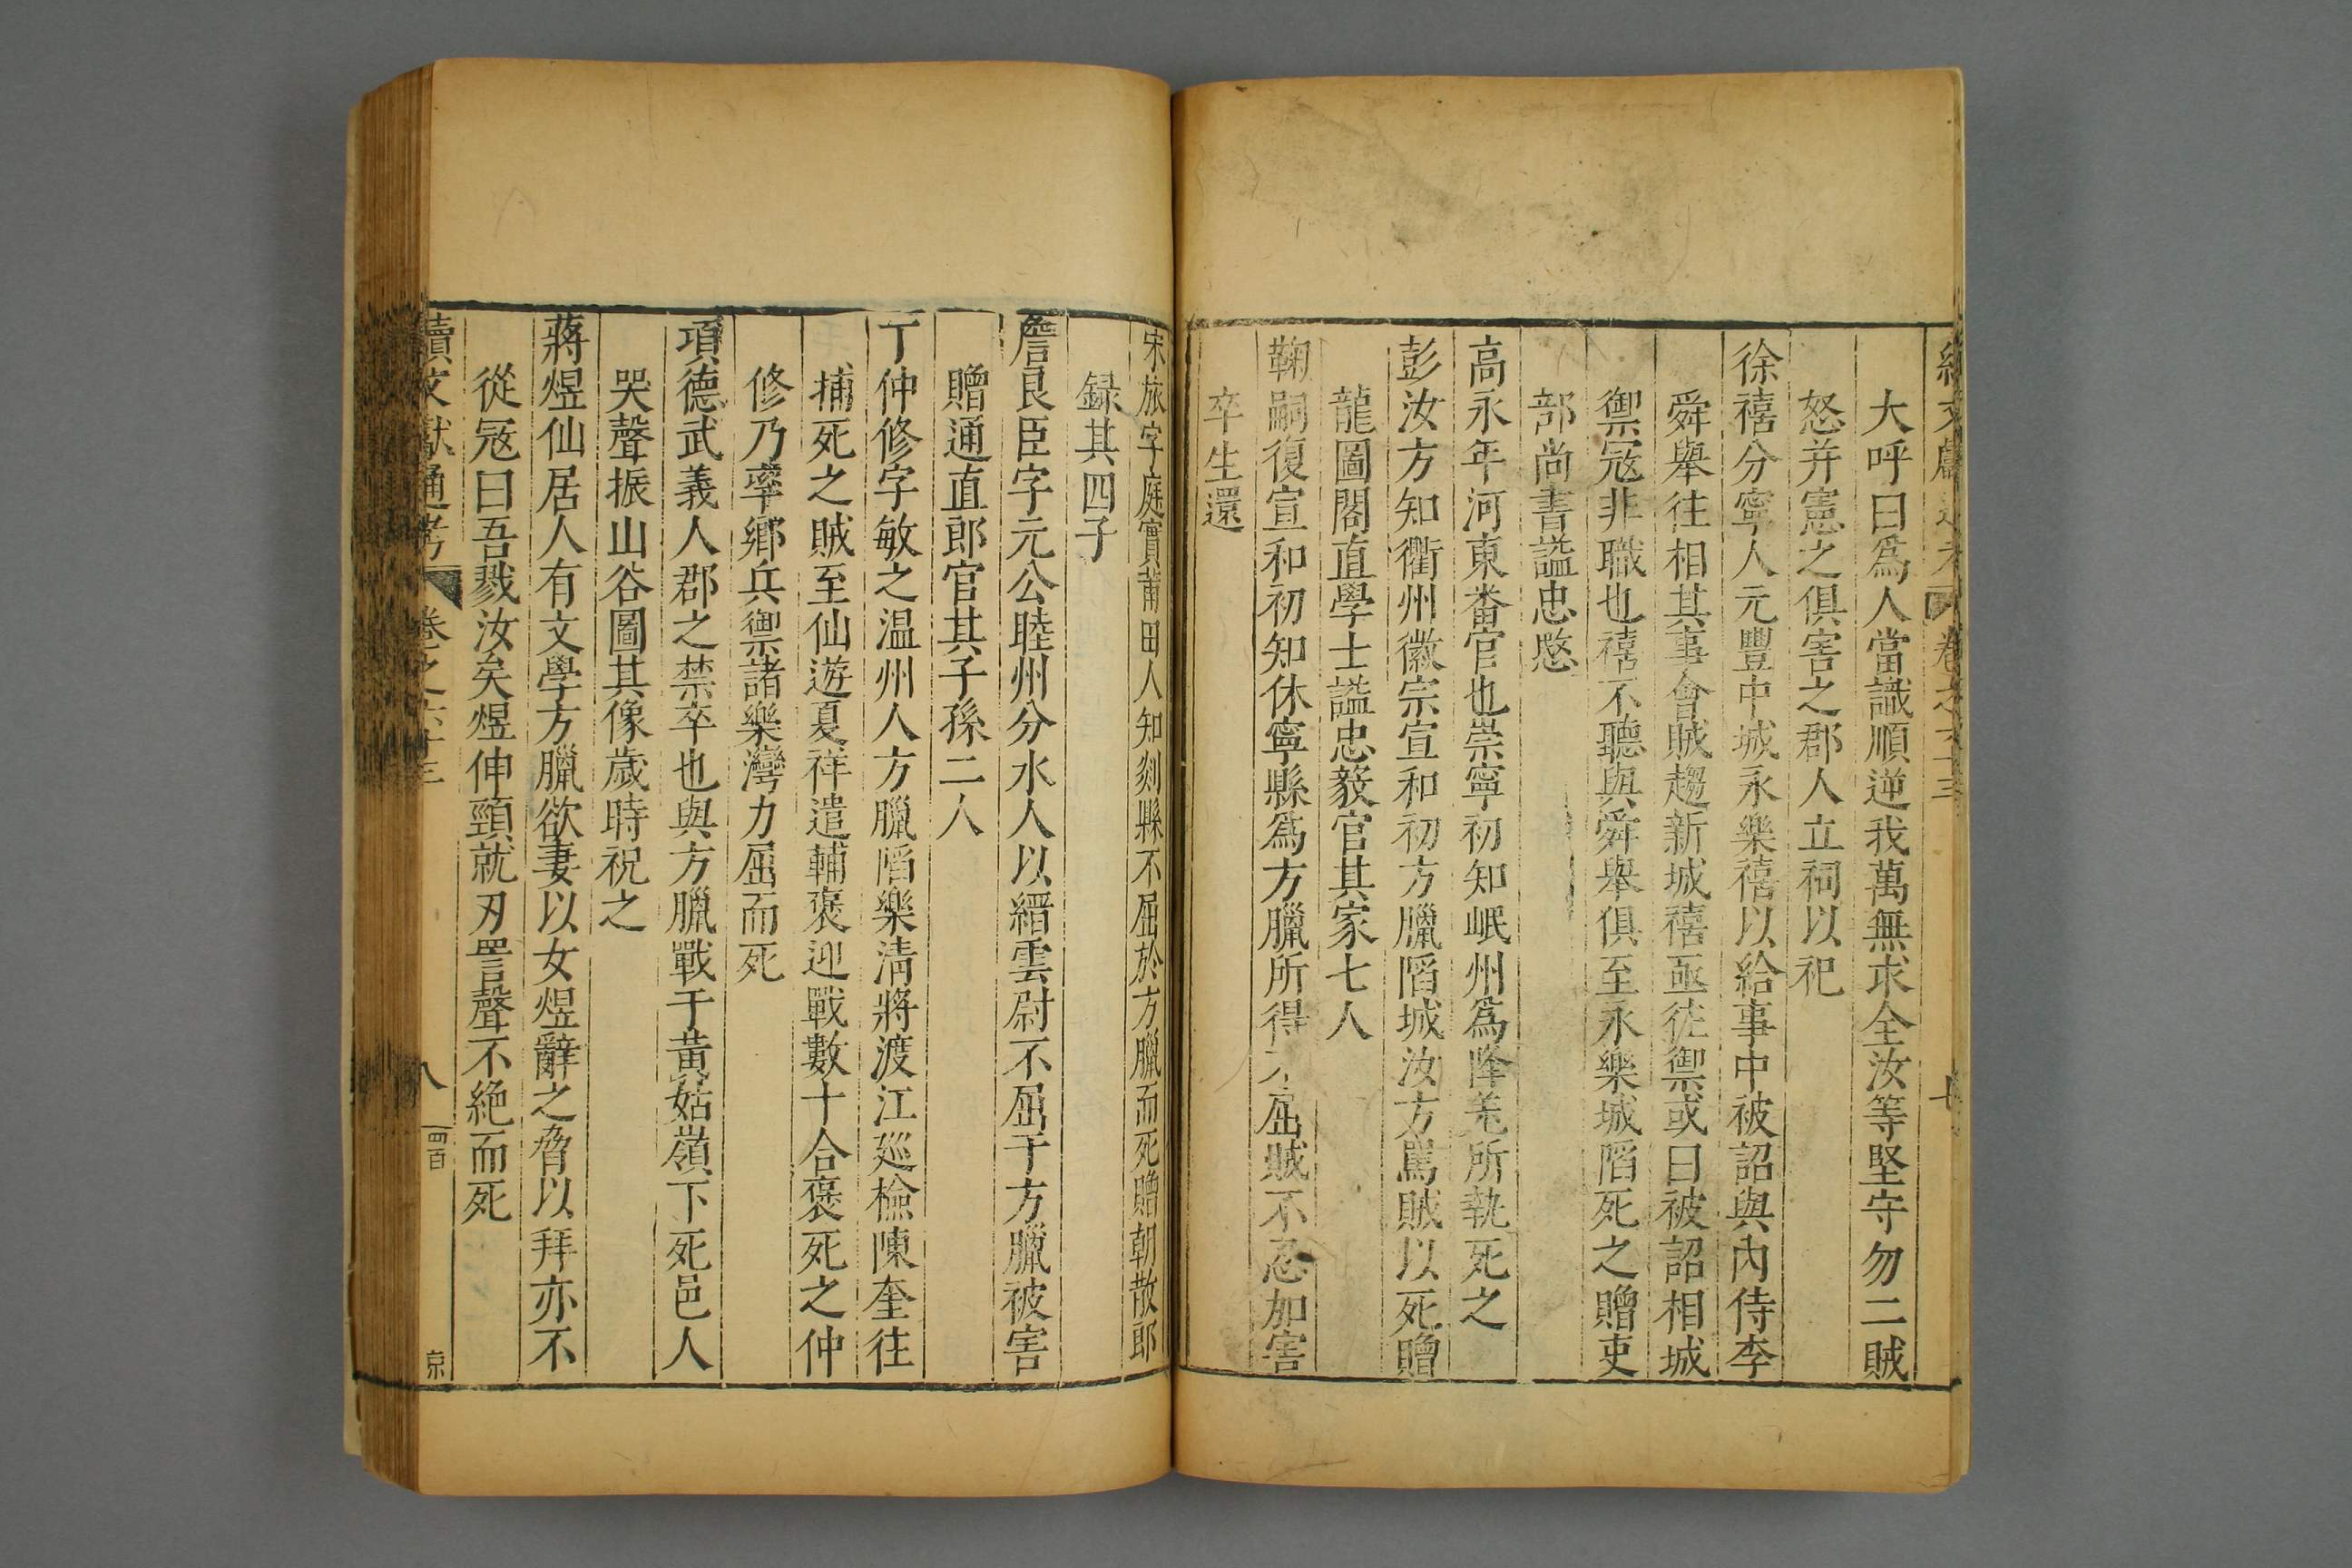 大呼曰爲人當識順逆我萬無求全汝等堅守勿二賊
怒并憲之俱害之郡人立祠以祀
徐禧分寧人元豐中城永樂禧以給事中被詔與內侍李
舜舉往相其事會賊趨新城禧亟往禦或曰被詔相城
禦寇非職也禧不聽與舜舉俱至永樂城陷死之贈吏
部尚書謚忠愍
高永年河東畨官也崇寧初知岷州爲降羌所執死之
彭汝方知衢州徽宗宣和初方臘陷城汝方罵賊以死贈
龍圖閣直學士謚忠毅官其家七人
鞠嗣復宣和初知休寧縣爲方臘所得不屈賊不忍加害
卒生還
宋旅字庭實莆田人知剡縣不屈於方臘而死贈朝散郎
録其四子
詹良臣字元公睦州分水人以縉雲尉不屈于方臘被害
贈通直郎官其子孫二人
丁仲修字敏之温州人方臘陷樂清將渡江巡檢陳奎往
捕死之賊至仙遊夏祥遣輔褒迎戰數十合褒死之仲
修乃率鄉兵禦諸樂灣力屈而死
項德武義人郡之禁卒也與方臘戰于黃姑嶺下死邑人
哭聲振山谷圖其像歲時祝之
蔣煜仙居人有文學方臘欲妻以女煜辭之脅以拜亦不
從寇曰吾戮汝矣煜伸頸就刃詈聲不絶而死
續文獻通考 卷之六十三 八 四百 京